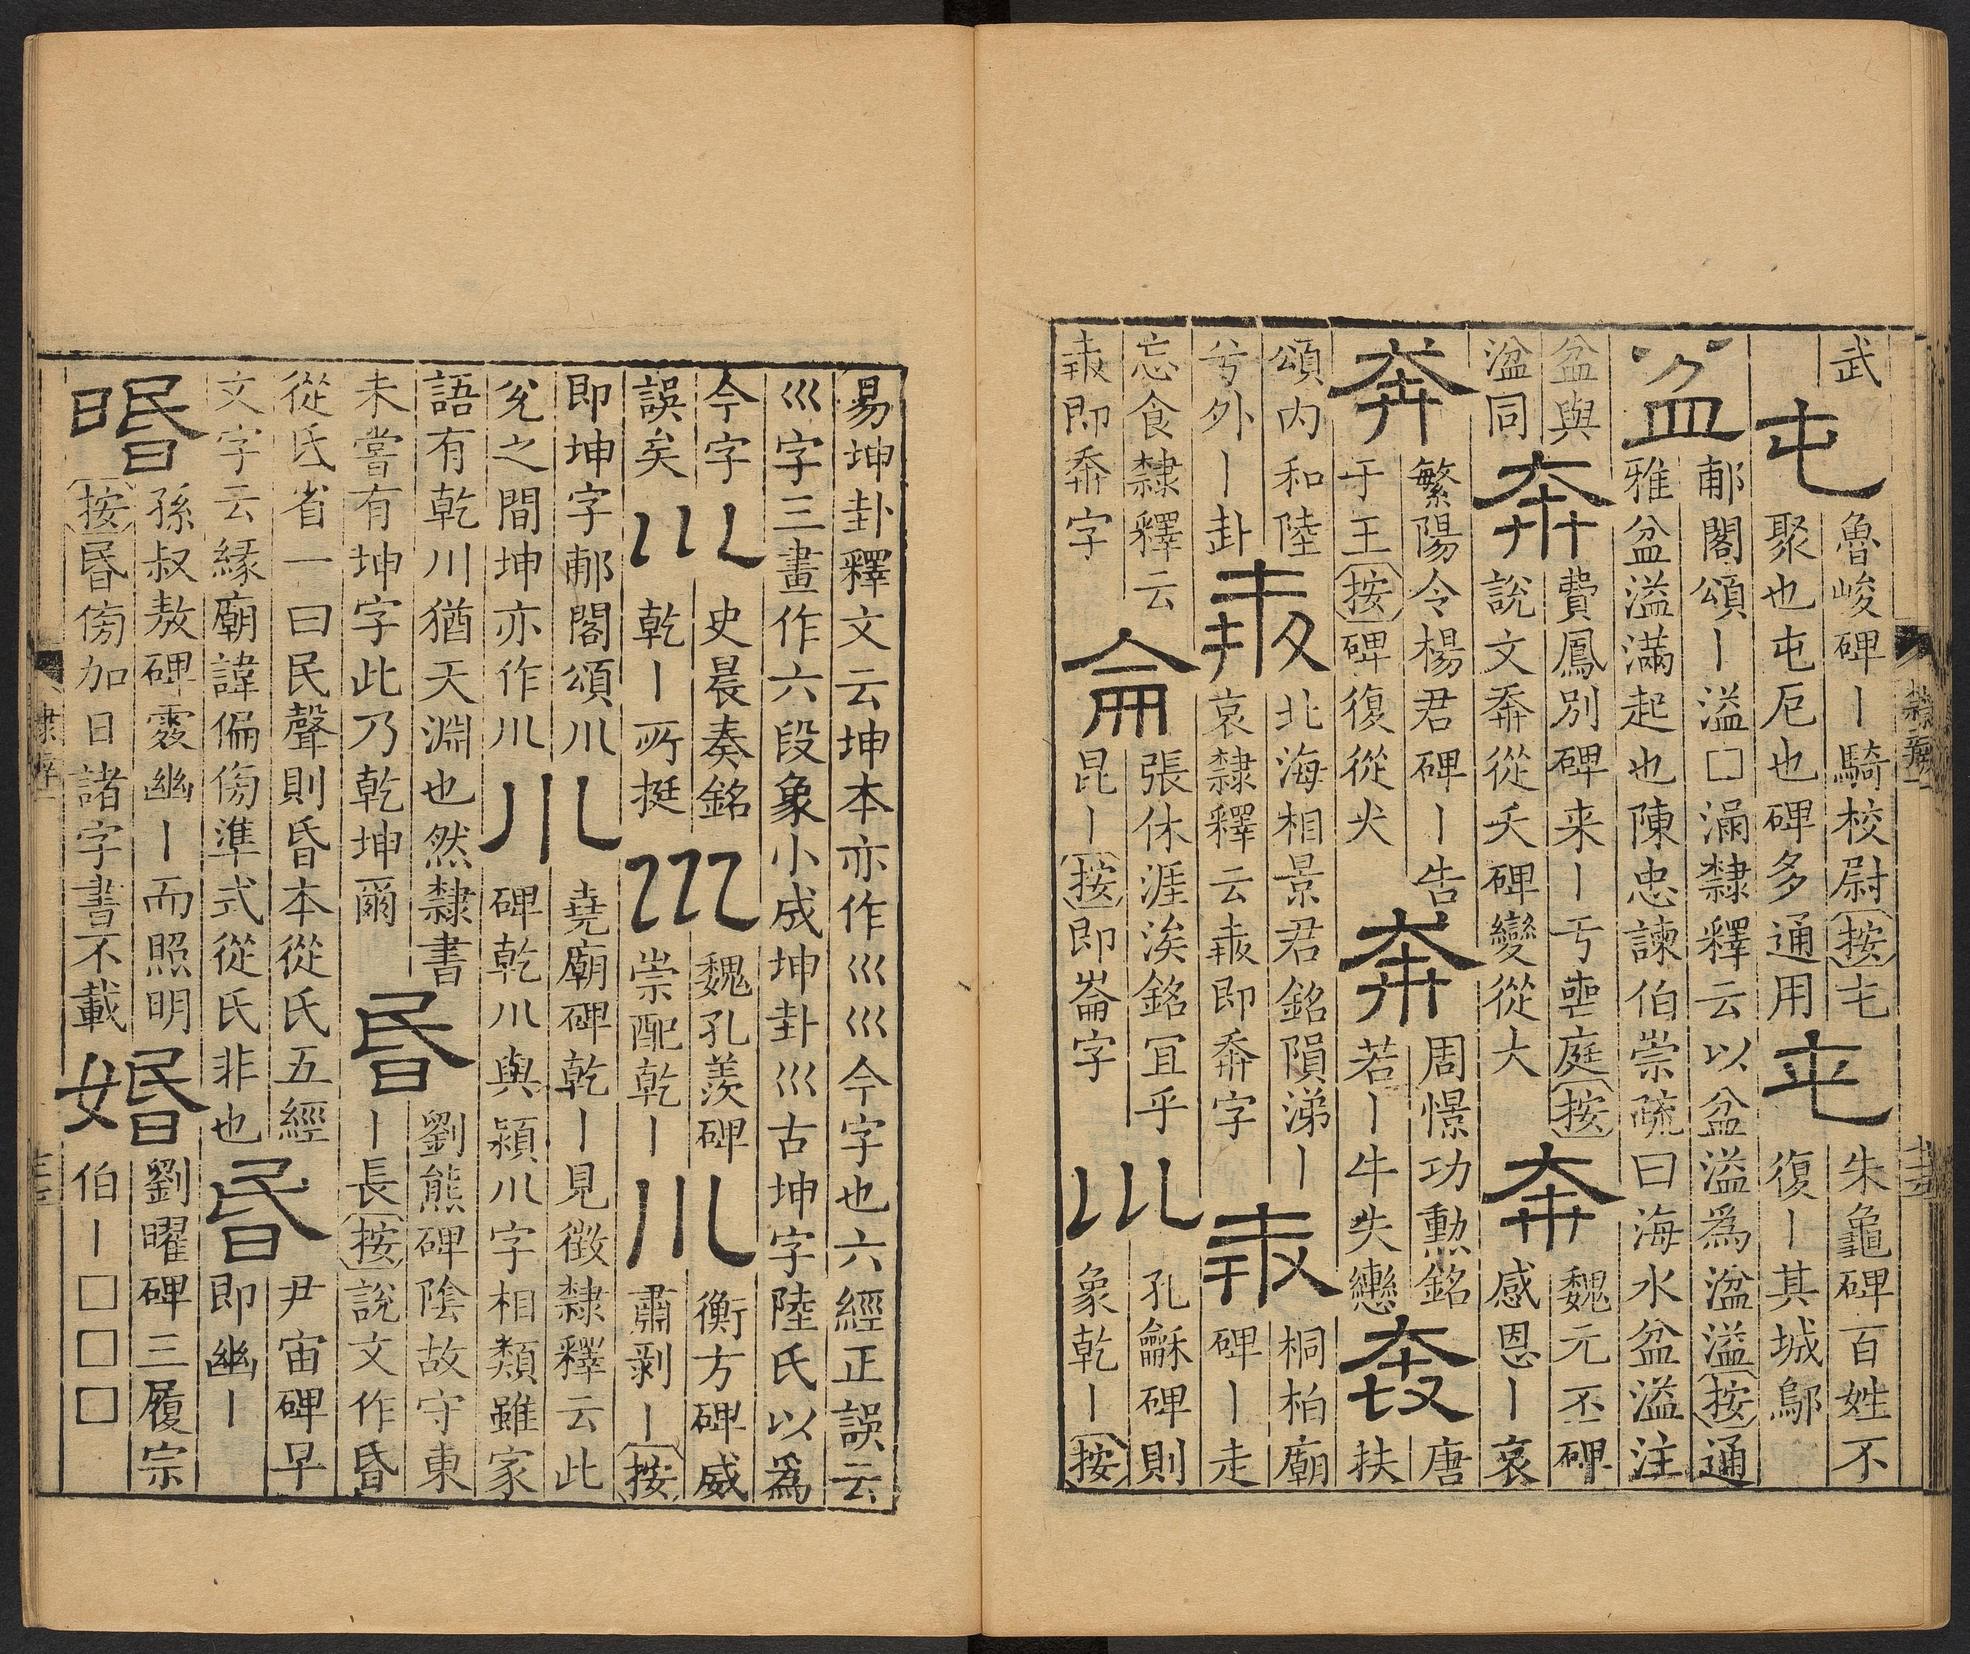 武
屯
魯峻碑丨騎校尉按屯
聚也屯厄也碑多通用
屯
朱龜碑百姓不
復丨其城鄔
盆
郙閣頌丨溢□滿隸釋云以盆溢爲湓溢按通
雅盆溢滿起也陳忠諫伯崇疏曰海水盆溢注
盆與
湓同
奔
費鳳別碑来丨亏亟庭按
說文奔從夭碑變從大
奔
魏元丕碑
感恩丨哀
奔
繁陽令楊君碑丨告
于王按碑復從犬
奔
周憬功勲銘
若丨牛失轡
奔
唐
扶
頌内和陸
兮外丨卦
𡙜
北海相景君銘隕涕丨
哀隸釋云𡙜即奔字
𡙜
桐柏廟
碑丨走
忘食隸釋云
𡙜即奔字
侖
張休涯涘銘冝乎
昆丨按即崙字
川
孔龢碑則
象乾丨按
易坤卦釋文云坤本亦作巛巛今字也六經正誤云
巛字三畫作六段象小成坤卦巛古坤字陸氏以爲
今字
誤矣
川
史晨奏銘
乾丨所挺
巛
魏孔羨碑
崇配乾丨
川
衡方碑威
肅剥丨按
即坤字郙閣頌川
兊之間坤亦作川
川
堯廟碑乾丨見徵隸釋云此
碑乾川與潁川字相類雖家
語有乾川猶天淵也然隸書
未嘗有坤字此乃乾坤爾
昬
劉熊碑陰故守東
丨長按說文作昏
從氐省一曰民聲則昏本從氏五經
文字云緣廟諱偏傍準式從氏非也
昬
尹宙碑早
即幽丨
孫叔敖碑幽丨而照明
按昬傍加日諸字書不載
㛰
劉曜碑三履宗
伯丨□□□